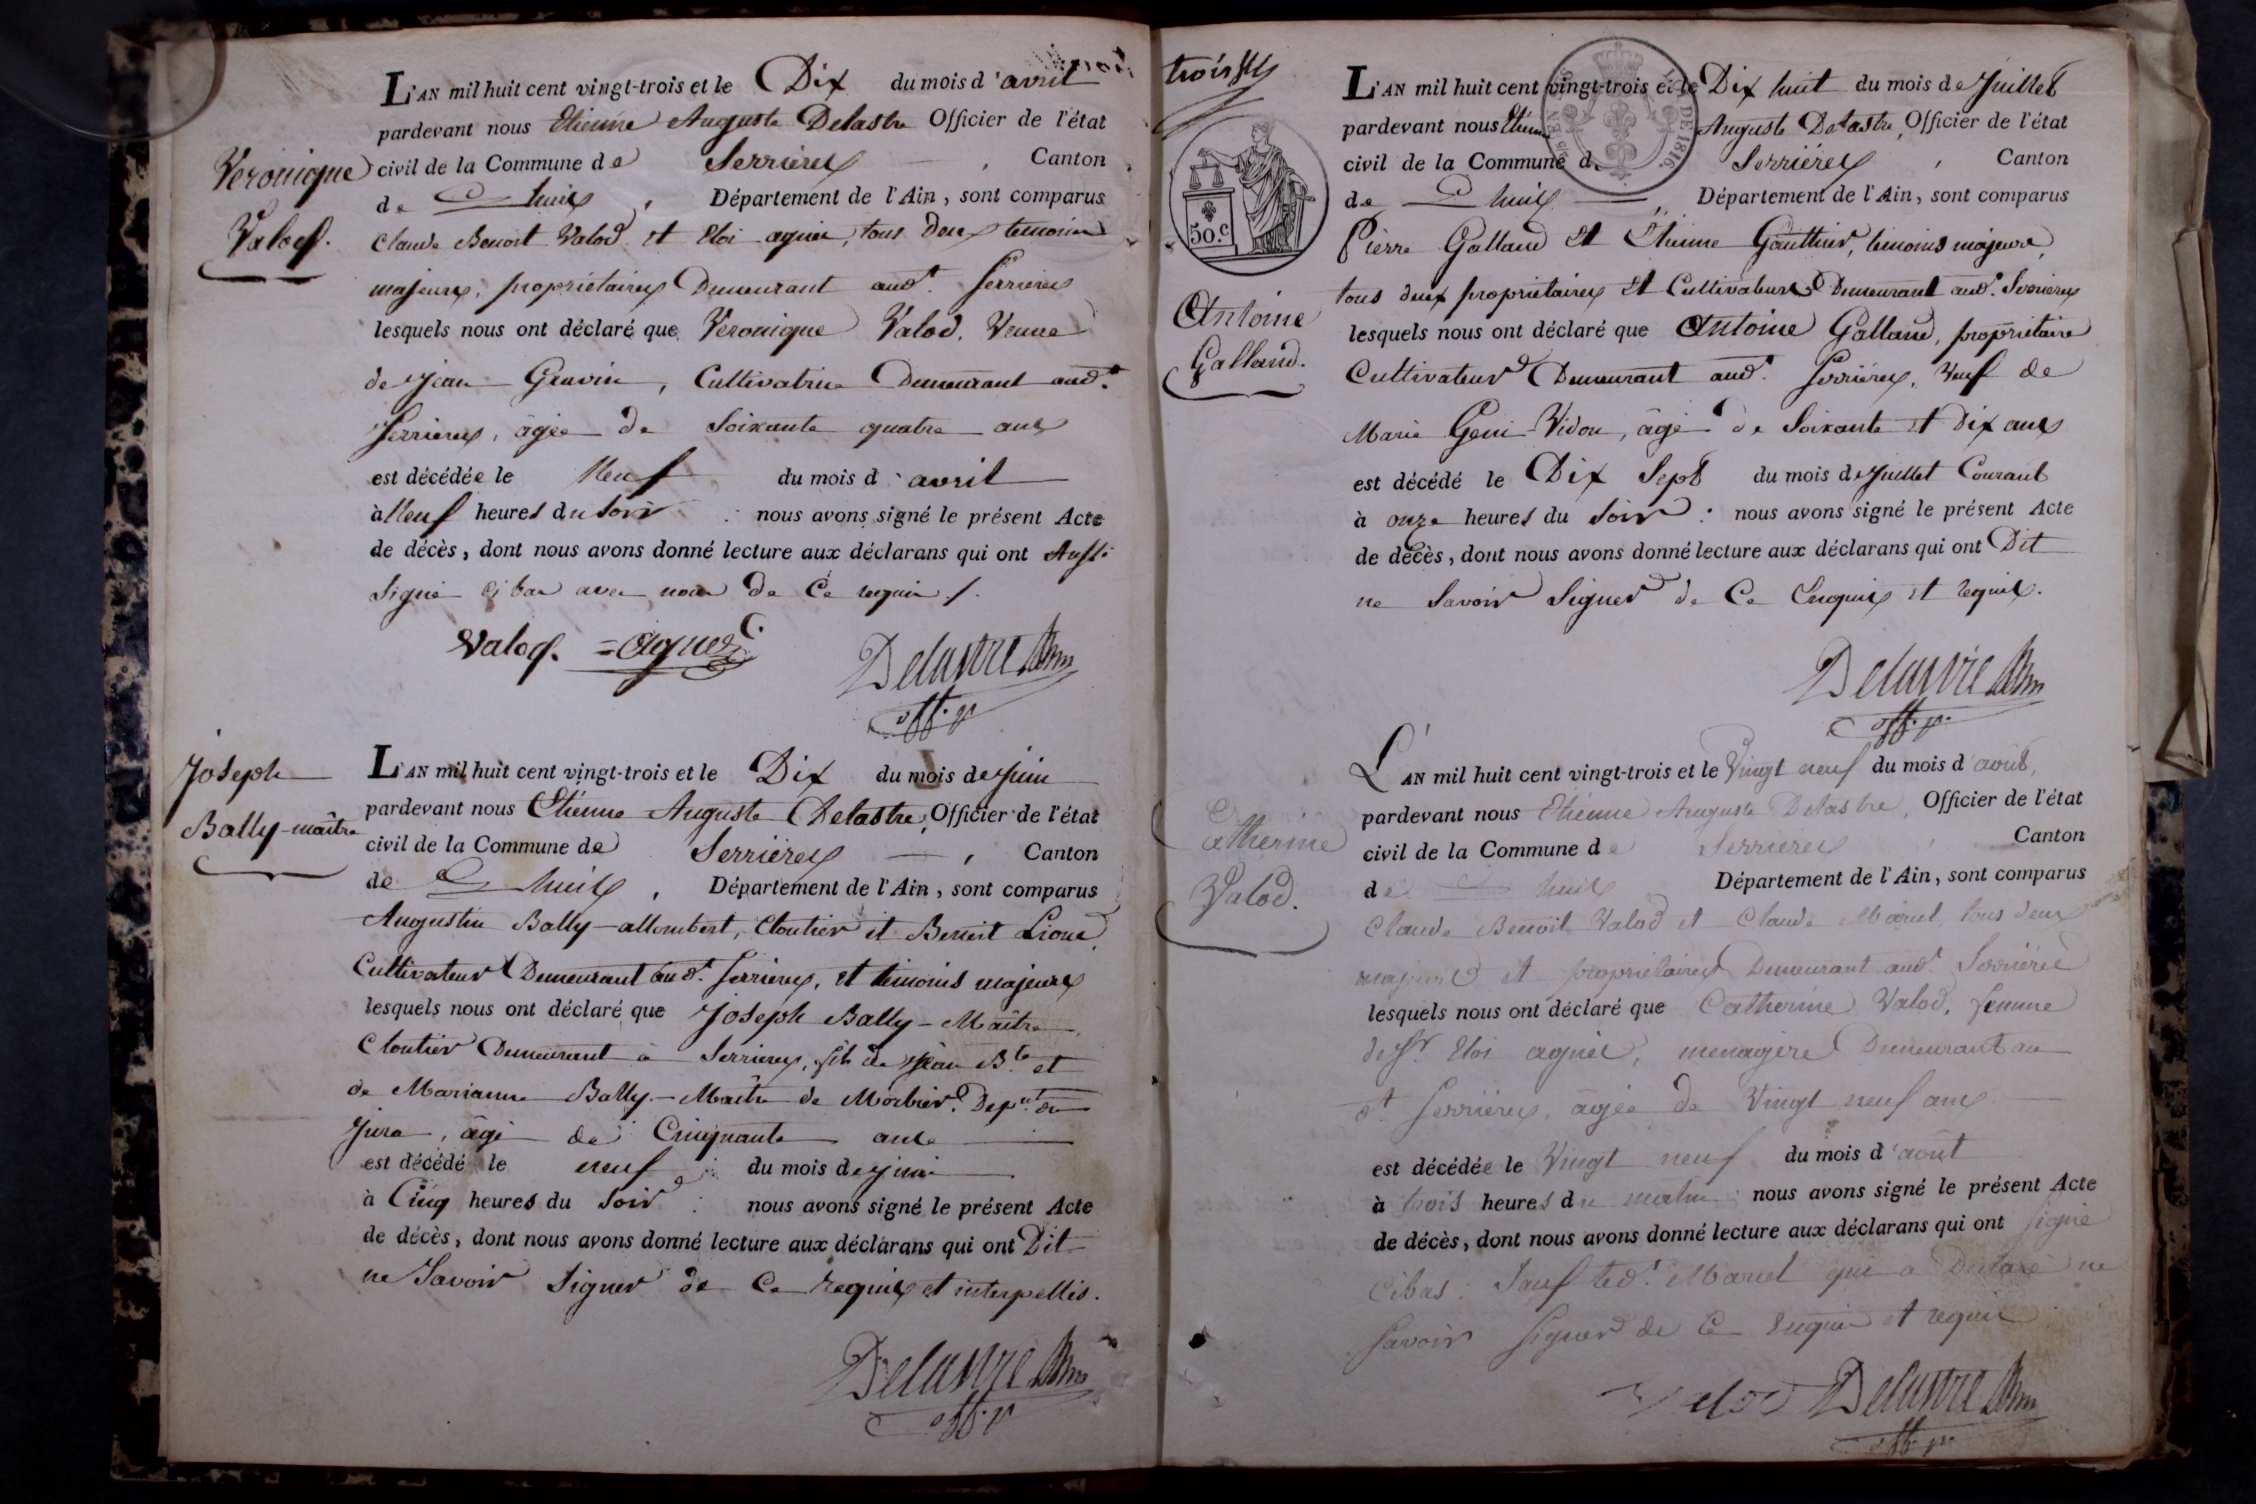 L'AN mil huit cent vingt-trois et le Dix du mois d'avril
pardevant nous Etienne Auguste Delastre Officier de l'état
civil de la Commune de Serrieres, Canton
de huis, Département de l'Ain, sont comparus
Claude Benoit Valod et Eloi agnier, tous Deux temoins
majeurs, propriétaires Demeurant aud.t Serrieres
lesquels nous ont déclaré que Veronique Valod, Veuve
de Jean Gravin, Cultivatrice Demeurant aud.t
Serrieres, âgée de Soixante quatre ans
est décédée le Neuf du mois d'avril
à Neuf heures du Soir : nous avons signé le présent Acte
de décès, dont nous avons donné lecture aux déclarans qui ont Aussi
Signé ci bas avec nous de Ce requis /.
Valod. = agnez
Delastre
off. p.
Veronique
Valod.
L'AN mil huit cent vingt-trois et le Dix du mois de Juin
pardevant nous Etienne Auguste Delastre, Officier de l'état
civil de la Commune de Serriéres, Canton
de huis, Département de l'Ain, sont comparus
Augustin Bally-allombert, Cloutier et Benoit
Cultivateur Demeurant aud.t Serrieres, et témoins majeurs
lesquels nous ont déclaré que Joseph Bally-Maître
Cloutier Demeurant à Serrieres, fils de Jean B.te et
de Marianne Bally-Maître de Morbier Dep.nt du
Jura, âgé de Cinquante ans
est décédé le neuf du mois de Juin
à Cinq heures du Soir : nous avons signé le présent Acte
de décès, dont nous avons donné lecture aux déclarans qui ont Dit
ne Savoir Signer de Ce requis et interpellés.
Delastre
off. p.
Joseph
Bally-maître
trois
50.C
DE 1816.
L'AN mil huit cent vingt-trois et le Dix huit du mois de Juillet
pardevant nous Etienne Auguste Delastre, Officier de l'état
civil de la Commune de Serriéres, Canton
de huis, Département de l'Ain, sont comparus
Pierre Galland Et Etienne Gauthier, temoins majeurs,
tous deux propriétaires Et Cultivateurs Demeurant aud.t Serrieres
lesquels nous ont déclaré que Antoine Galland, propriétaire
Cultivateur Demeurant aud.t Serriéres, Veuf de
Marie Geni-Vidon, âgé de Soixante et Dix ans
est décédé le Dix Sept du mois de Juillet Courant
à onze heures du Soir : nous avons signé le présent Acte
de décès, dont nous avons donné lecture aux déclarans qui ont Dit
ne Savoir Signer de Ce Enquis et requis.
Delastre
off. p.
Antoine
Galland.
L'AN mil huit cent vingt-trois et le Vingt neuf du mois d'août,
pardevant nous Etienne Auguste Delastre, Officier de l'état
civil de la Commune de Serrieres, Canton
de huis, Département de l'Ain, sont comparus
Claude Benoit Valod et Claude Maruel, tous deux
majeurs et propriétaires Demeurant aud.t Serriéres
lesquels nous ont déclaré que Catherine Valod, femme
de S.r Eloi agnier, menagère Demeurant au
d.t Serriéres, âgée de Vingt neuf ans
est décédée le Vingt neuf du mois d'août
à trois heures du matin : nous avons signé le présent Acte
de décès, dont nous avons donné lecture aux déclarans qui ont Signé
Cibas. Sauf led.t Maruel qui a Declaré ne
Savoir Signer de Ce Enquis et requis
Valod Delastre
off. p.
Catherine
Valod.